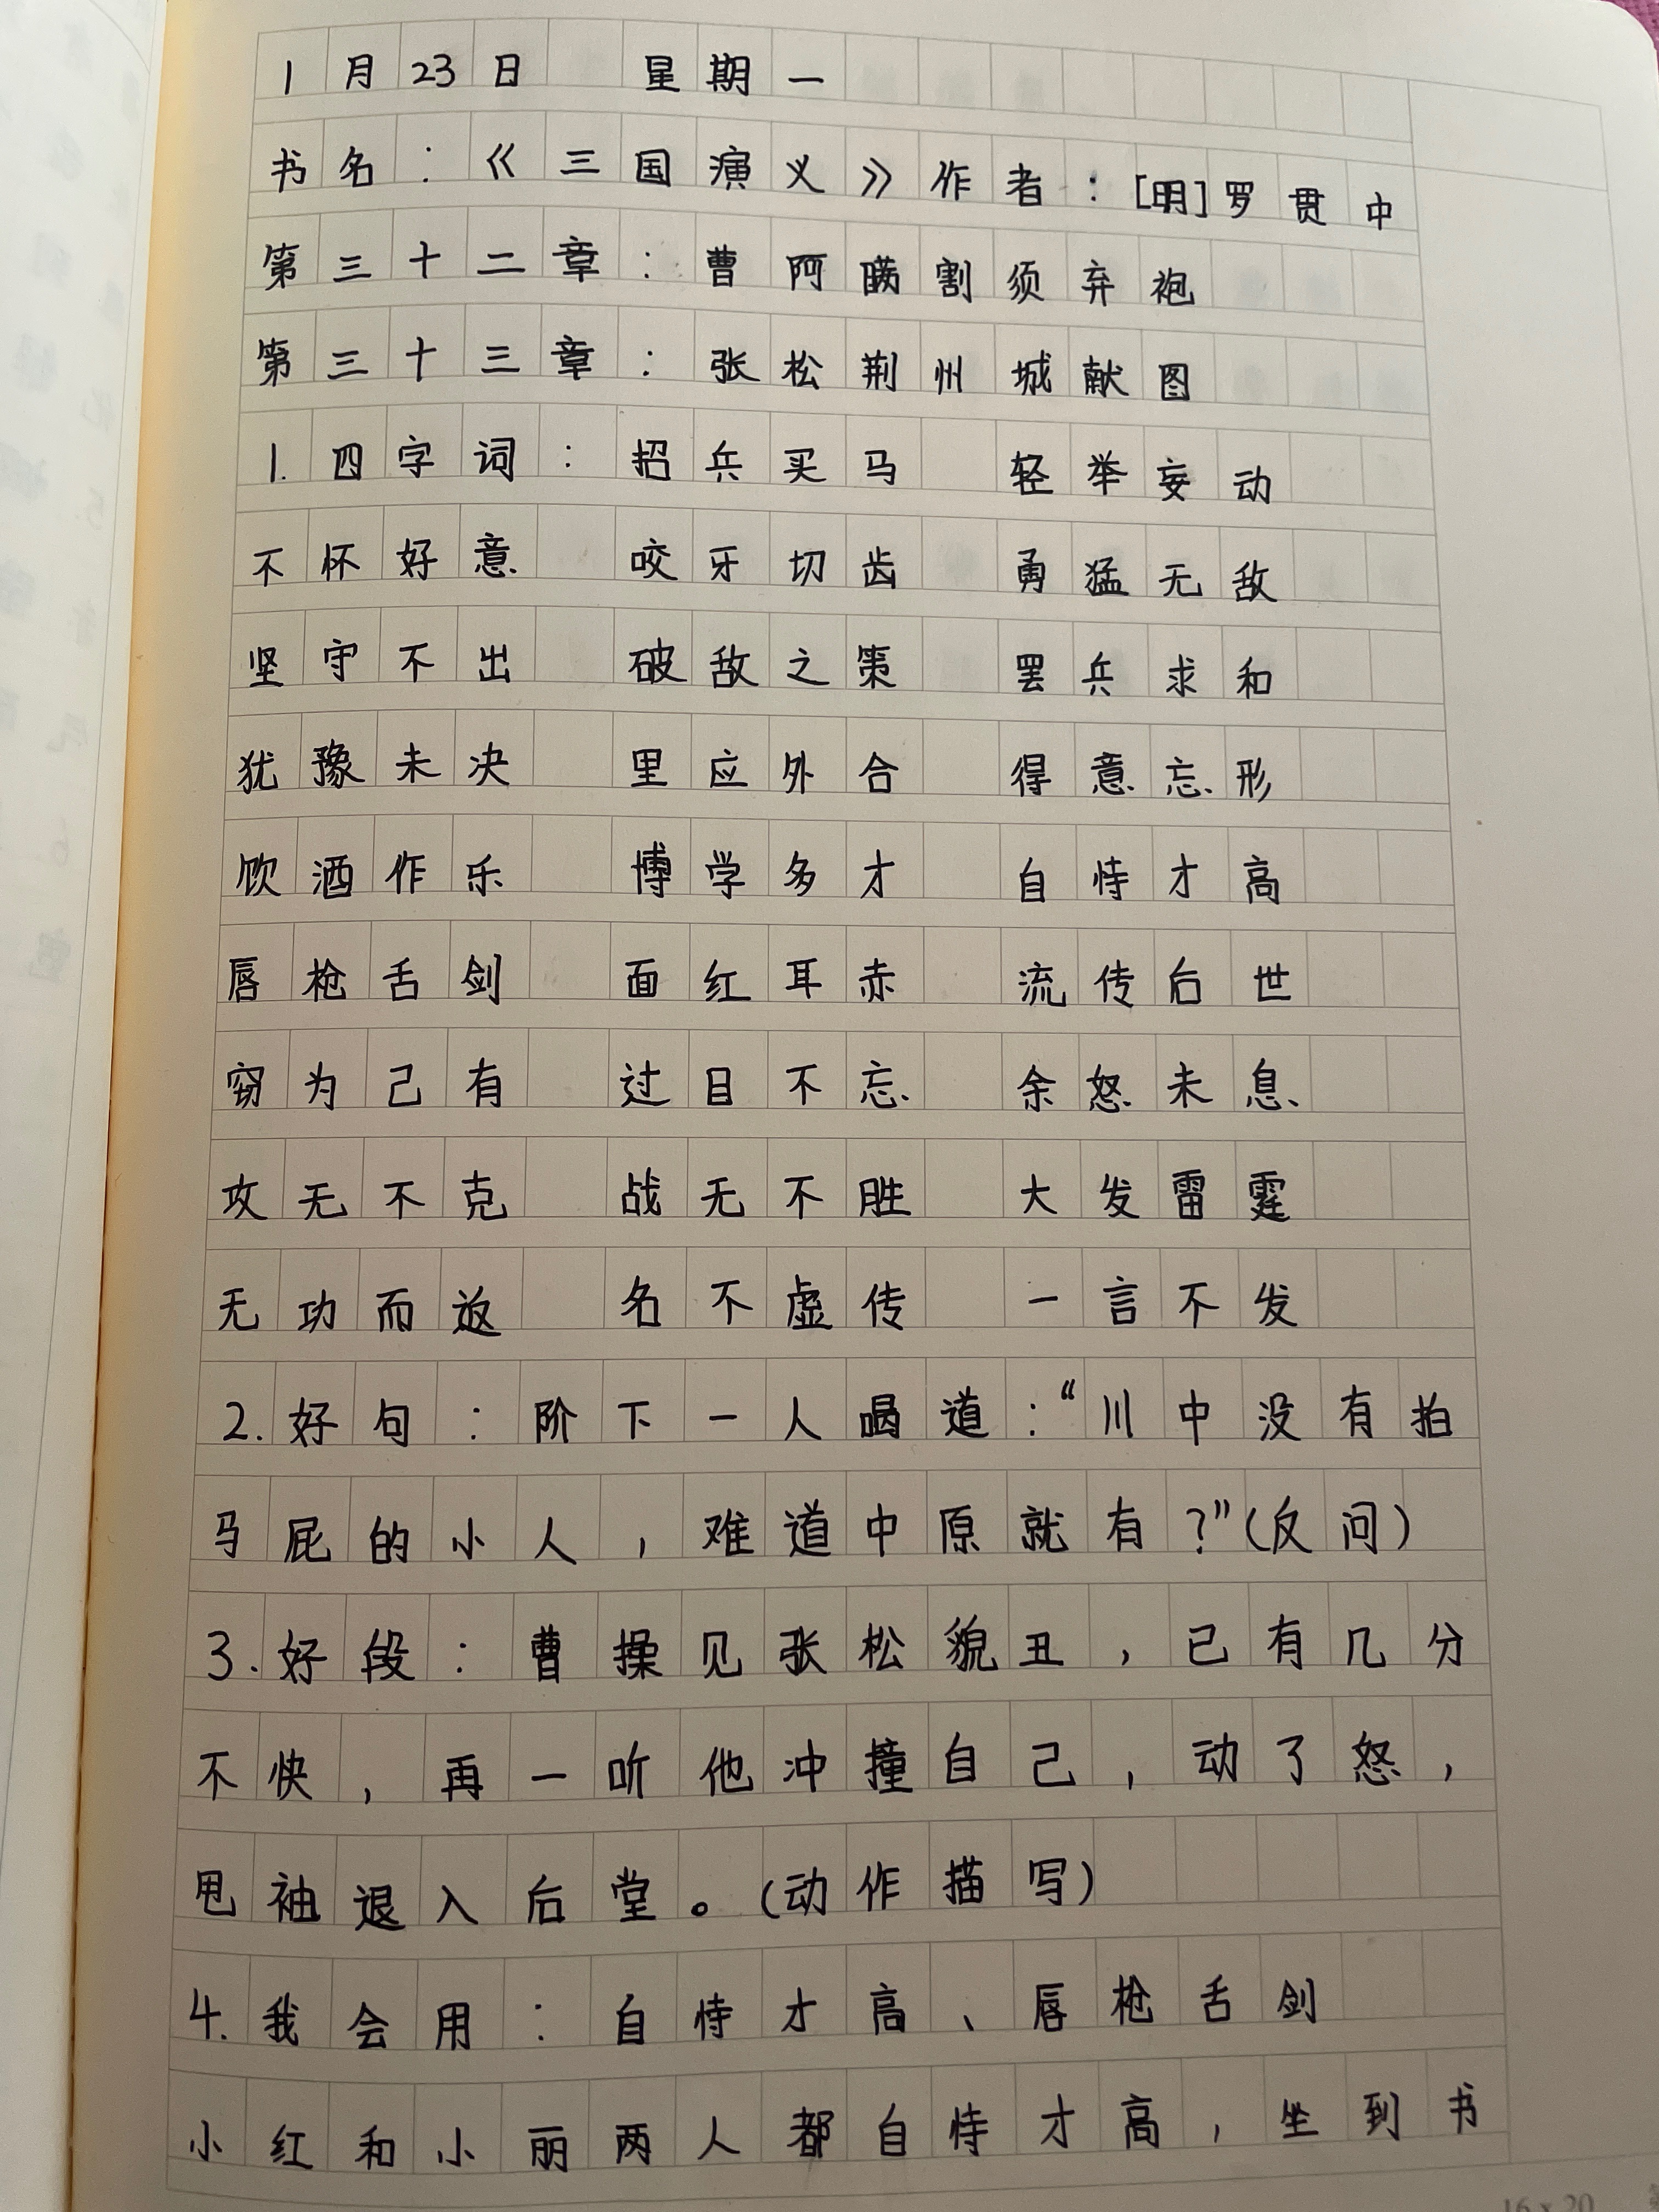 1月23日 星期一
书名：《三国演义》作者：[明]罗贯中
第三十二章：曹阿瞒割须弃袍
第三十三章：张松荆州城献图
1.四字词：招兵买马 轻举妄动
不怀好意 咬牙切齿 勇猛无敌
坚守不出 破敌之策 罢兵求和
犹豫未决 里应外合 得意忘形
饮酒作乐 博学多才 自恃才高
唇枪舌剑 面红耳赤 流传后世
窃为己有 过目不忘 余怒未息
攻无不克 战无不胜 大发雷霆
无功而返 名不虚传 一言不发
2.好句：阶下一人喝道：“川中没有拍
马屁的小人，难道中原就有？”(反问)
3.好段：曹操见张松貌丑，已有几分
不快，再一听他冲撞自己，动了怒，
甩袖退入后堂。(动作描写)
4.我会用：自恃才高、唇枪舌剑
小红和小丽两人都自恃才高，坐到书
16×20